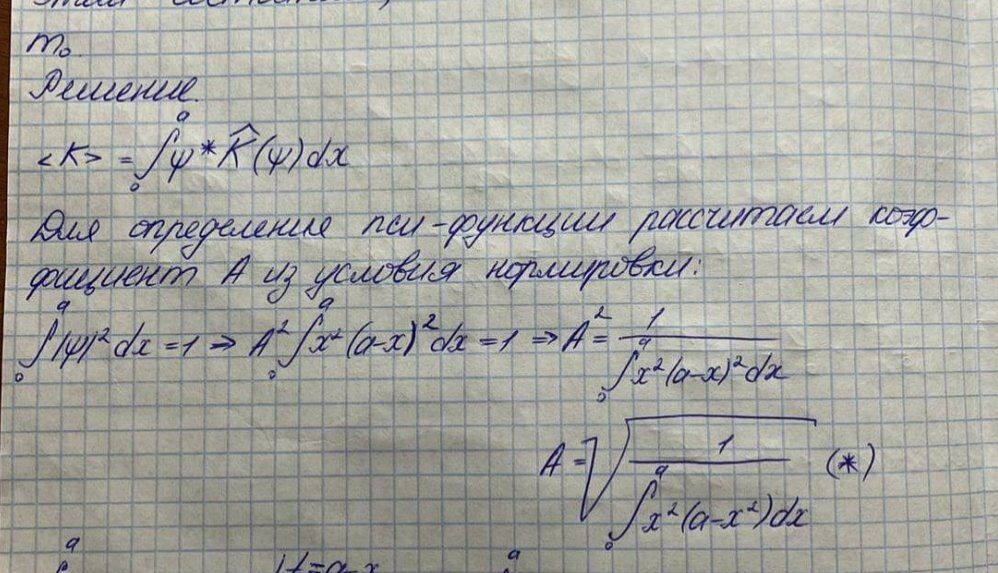 m₀.
Решение.
<K> = ∫₀ᵃ ψ* K̂(ψ)dx
Для определение пси-функции рассчитаем коэф-
фициент A из условия нормировки:
∫₀ᵃ |ψ|² dx = 1 ⇒ A² ∫₀ᵃ x²(a-x)² dx = 1 ⇒ A² = 1 / ∫₀ᵃ x²(a-x)² dx
A = √(1 / ∫₀ᵃ x²(a-x²)dx) (*)